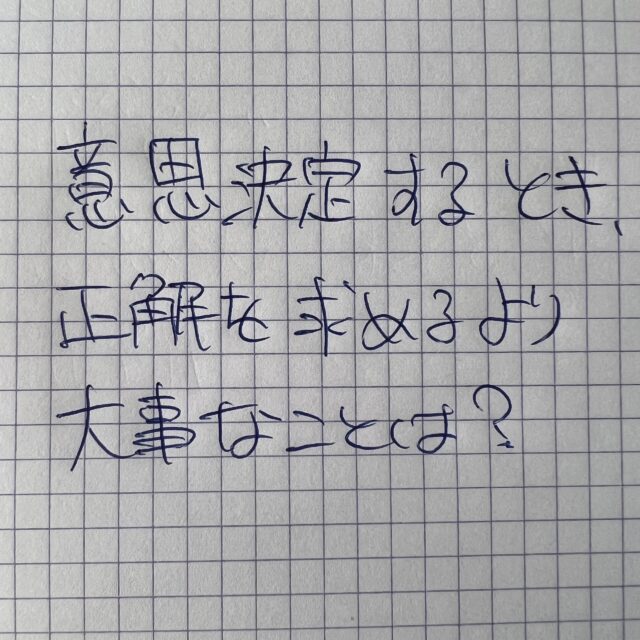 意思決定するとき、
正解を求めるより
大事なことは?